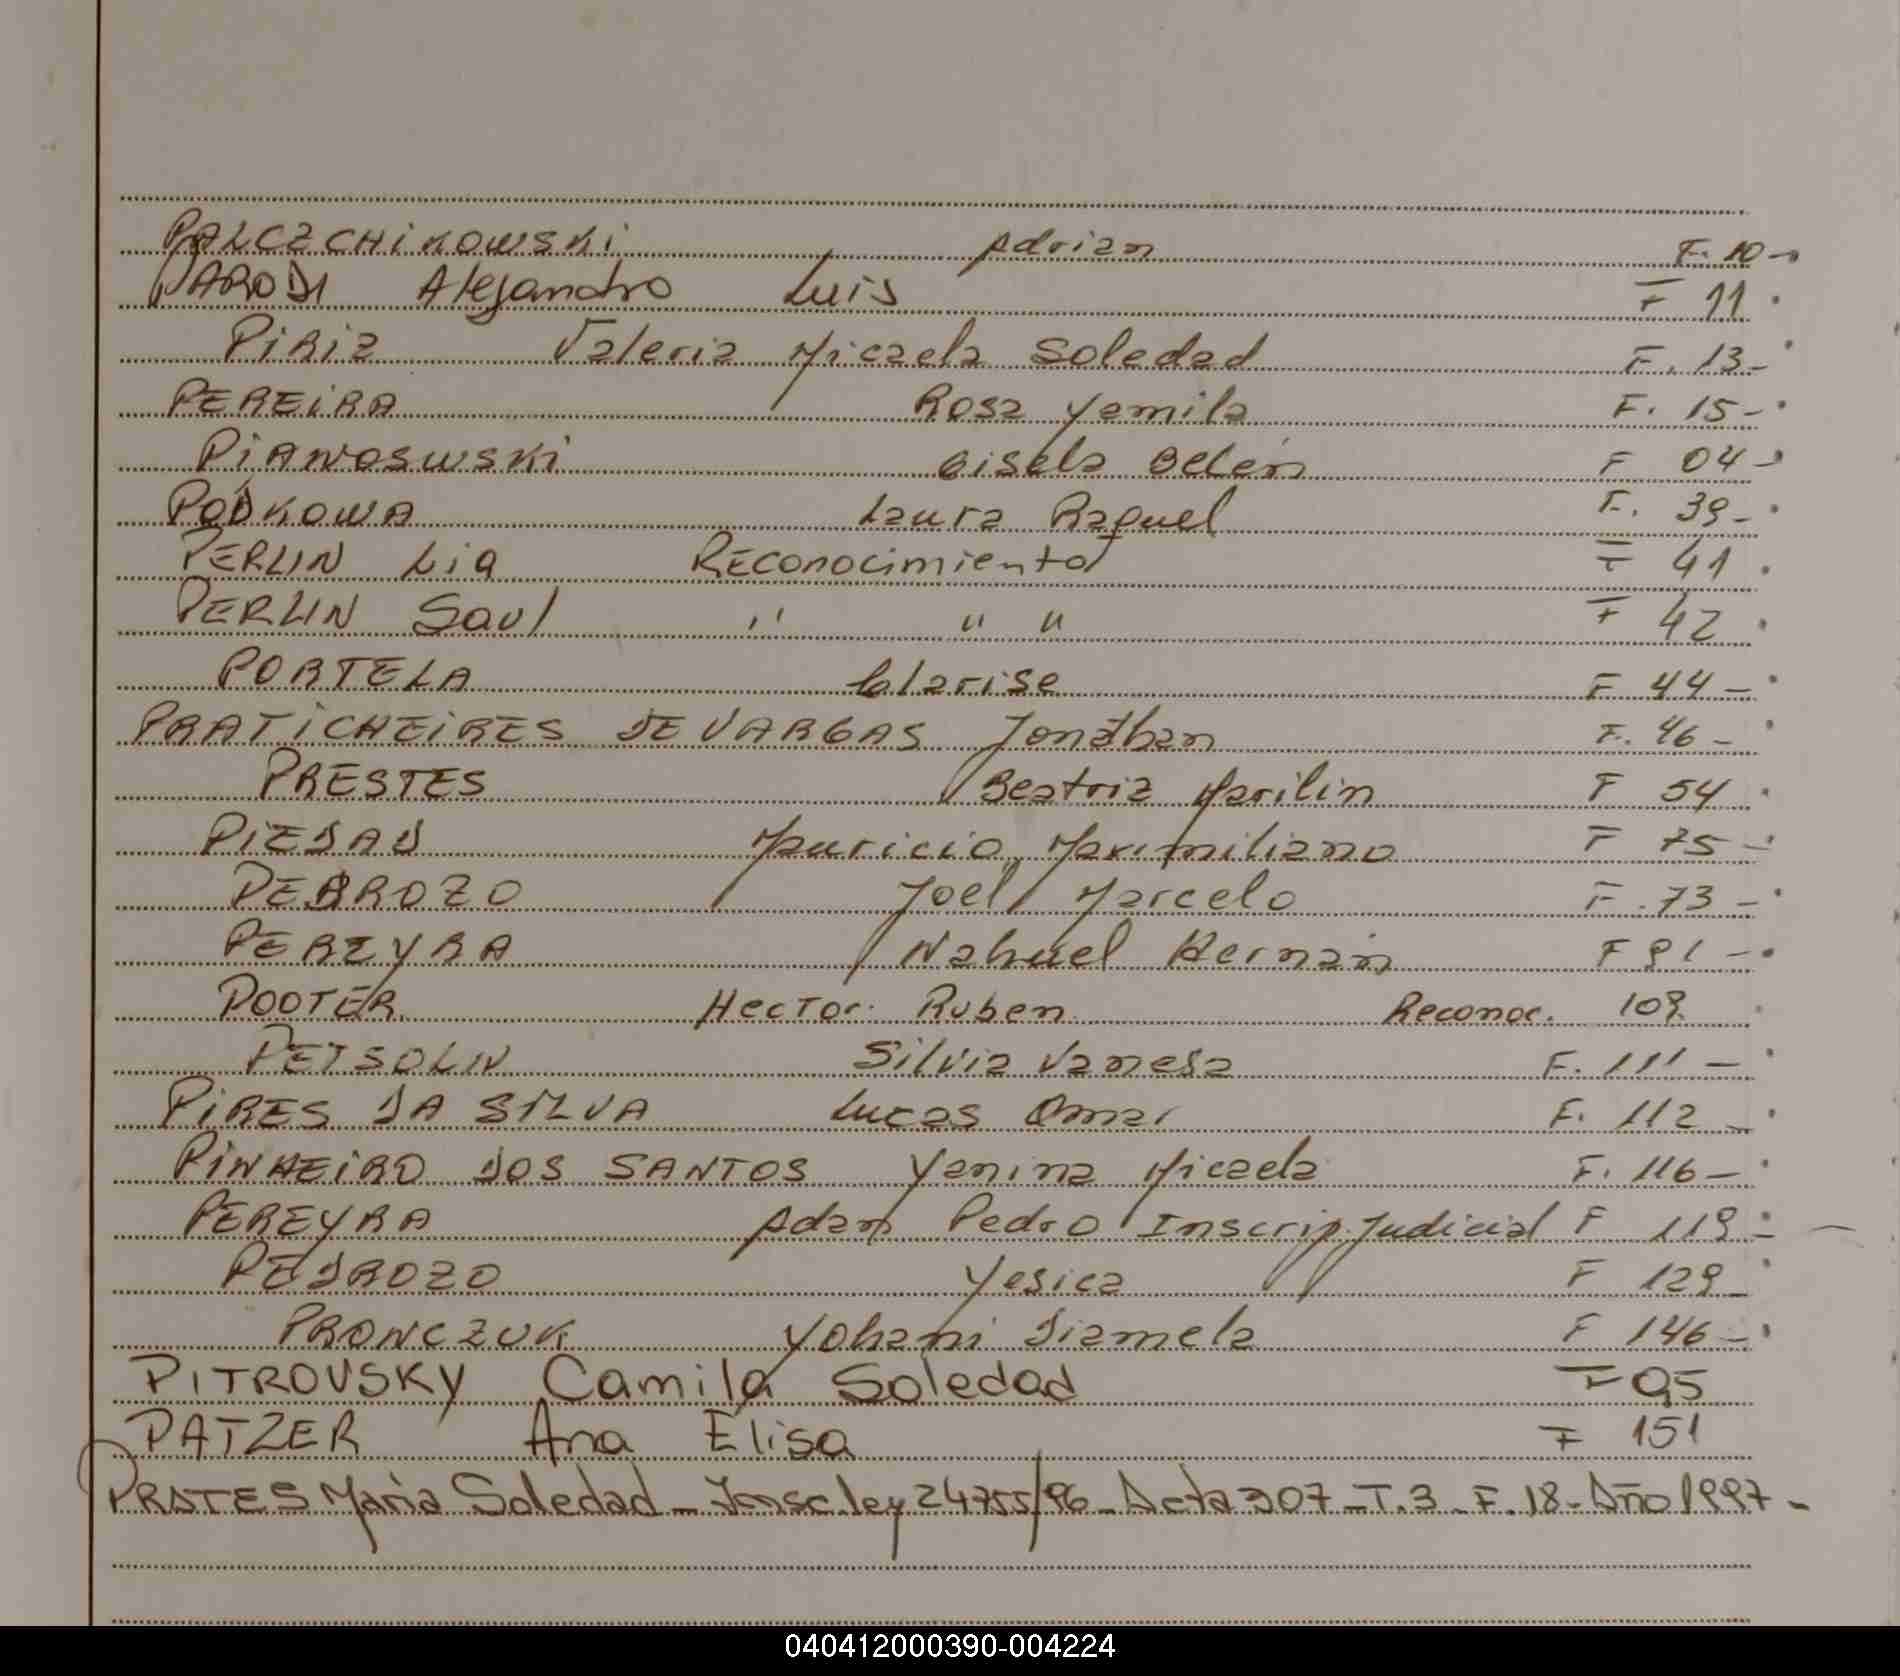 PALCZCHIKOWSKI Adrian F. 10-
PARODI Alejandro Luis F 11.
PIRIZ Valeria Micaela Soledad F. 13-
PEREIRA Rosa Yamila F. 15-
PIANOSWSKI Gisela Belén F 04-
PODKOWA Laura Raquel F. 39-
PERLIN Lia Reconocimiento F 41.
PERLIN Saul " " " F 42.
PORTELA Clarise F 44-
PRATICHEIRES DE VARGAS Jonathan F. 46-
PRESTES Beatriz Marilin F 54.
PIEDAD Mauricio Maximiliano F 75-
PEDROZO Joel Marcelo F. 73-
PEREYRA Nahuel Hernán F 91-
POOTER Hector Ruben Reconoc. 109
PETSOLIN Silvia Vanesa F. 111-
PIRES DA SILVA Lucas Omar F. 112-
PINHEIRO DOS SANTOS Yanina Micaela F. 116-
PEREYRA Adan Pedro Inscrip. Judicial F 119-
PEDROZO Yesica F 129-
PRONCZUK Yohani Diamela F 146-
PITROVSKY Camila Soledad F 95
PATZER Ana Elisa F 151
PRATES Maria Soledad - Insc. ley 24755/96 - Acta 207 - T. 3 - F. 18 - Año 1997 -
040412000390-004224